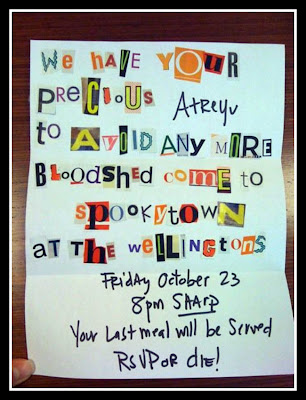 We HAVE YOUR
PReCious Atreyu
to AVOiD ANy MORE
BlOOdsHED cOME to
spOOKytOWN
AT THe weLLINGtONs
Friday October 23
8pm SHARP
Your Last meal will be Served
RSVP OR die!